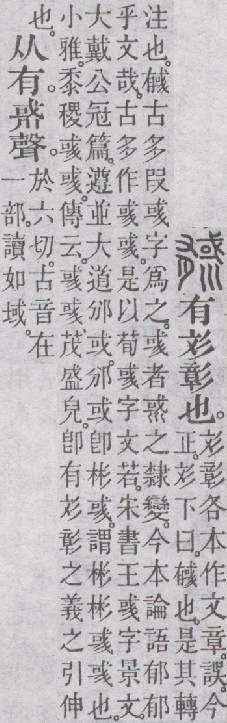 戫
有彣彰也。
彣彰各本作文章。誤。今
正。彣下曰。戫也。是其轉
注也。戫古多叚彧字爲之。彧者𢧢之隸變。今本論語郁郁
乎文哉。古多作彧彧。是以荀彧字文若。宋書王彧字景文。
大戴公冠篇。遵並大道邠或。邠或卽彬彧。謂彬彬彧彧也。
小雅。黍稷彧彧。傳云。彧彧、茂盛皃。卽有彣彰之義之引伸
也。
从有。𢧢聲。
於六切。古音在
一部。讀如域。